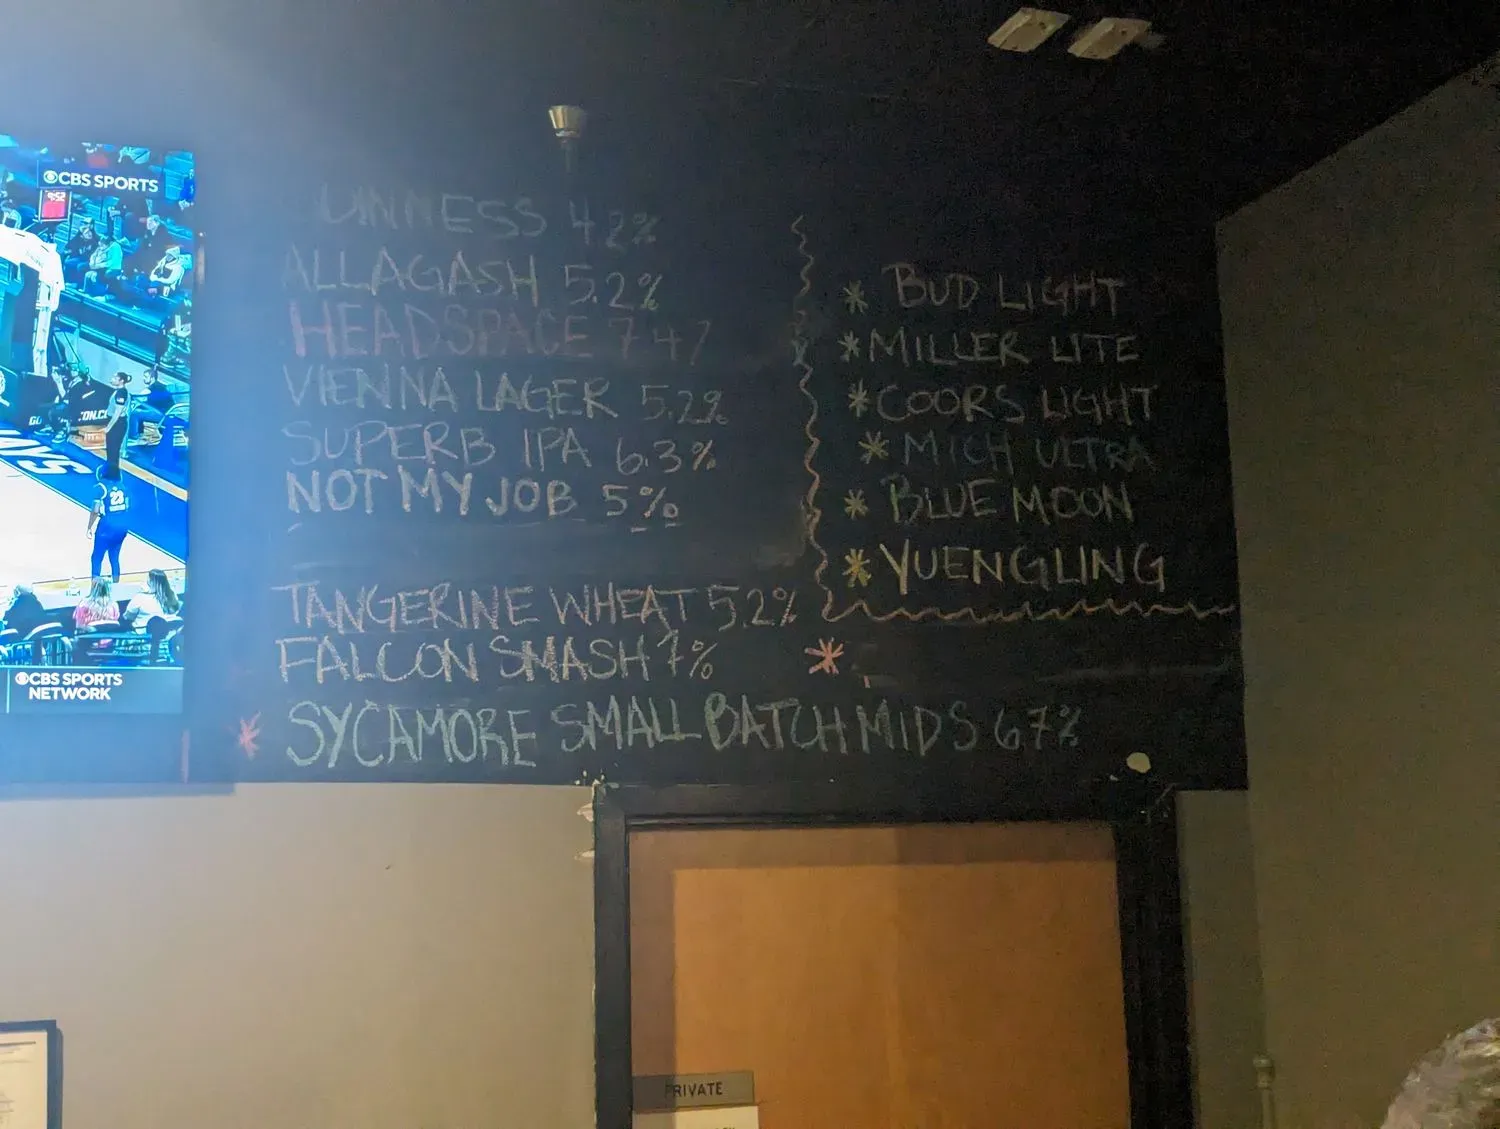 CBS SPORTS
UINNESS 4.2%
ALLAGASH 5.2%
HEADSPACE 7.4%
VIENNA LAGER 5.2%
SUPERB IPA 6.3%
NOT MY JOB 5%
TANGERINE WHEAT 5.2%
FALCON SMASH 7%
* SYCAMORE SMALL BATCH MIDS 6.7%
* BUD LIGHT
* MILLER LITE
* COORS LIGHT
* MICH ULTRA
* BLUE MOON
* YUENGLING
*
23
CBS SPORTS
NETWORK
PRIVATE